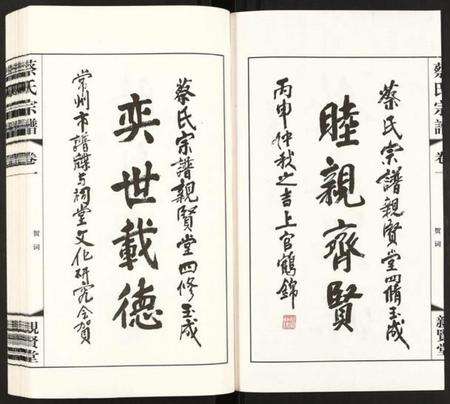 蔡氏宗譜
卷一
賀词
親賢堂
蔡氏宗譜親賢堂四脩玉成
睦親齊賢
丙申仲秋之吉上官鶴錦
蔡氏宗譜親賢堂四修玉成
奕世載德
常州市譜牒与祠堂文化研究会贺
蔡氏宗譜
卷一
賀词
親賢堂